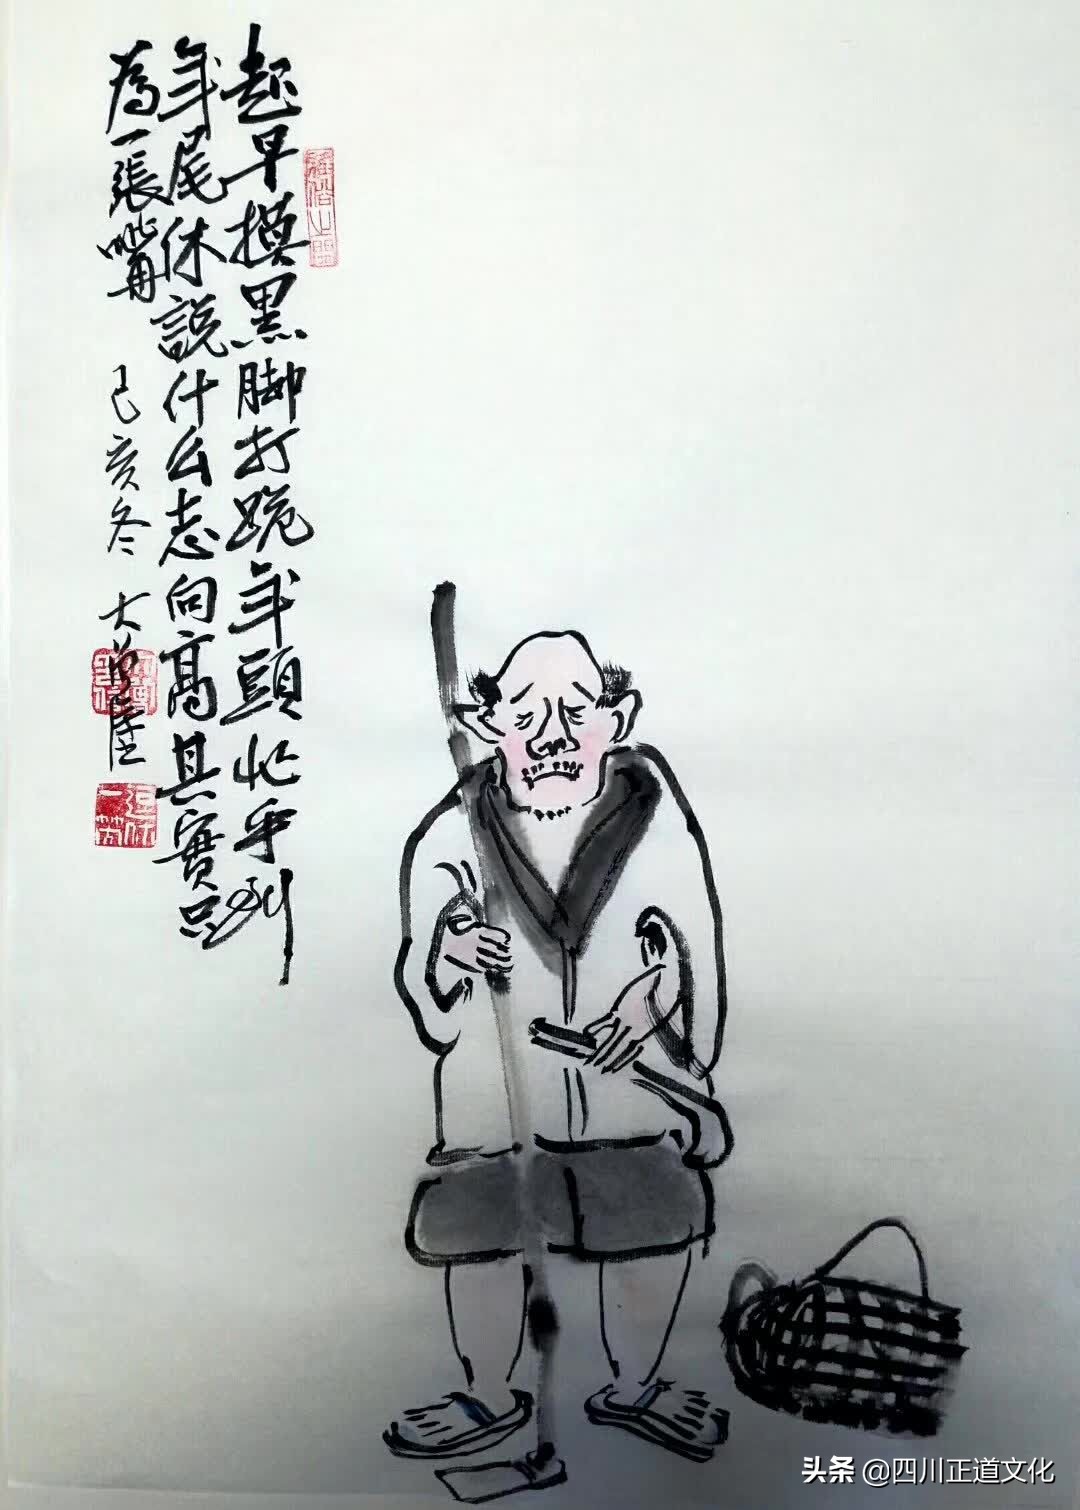 起早摸黑脚打跪年頭忙乎到
年尾休説什么志向高其實只
為一張嘴 己亥冬 大
头条 @四川正道文化